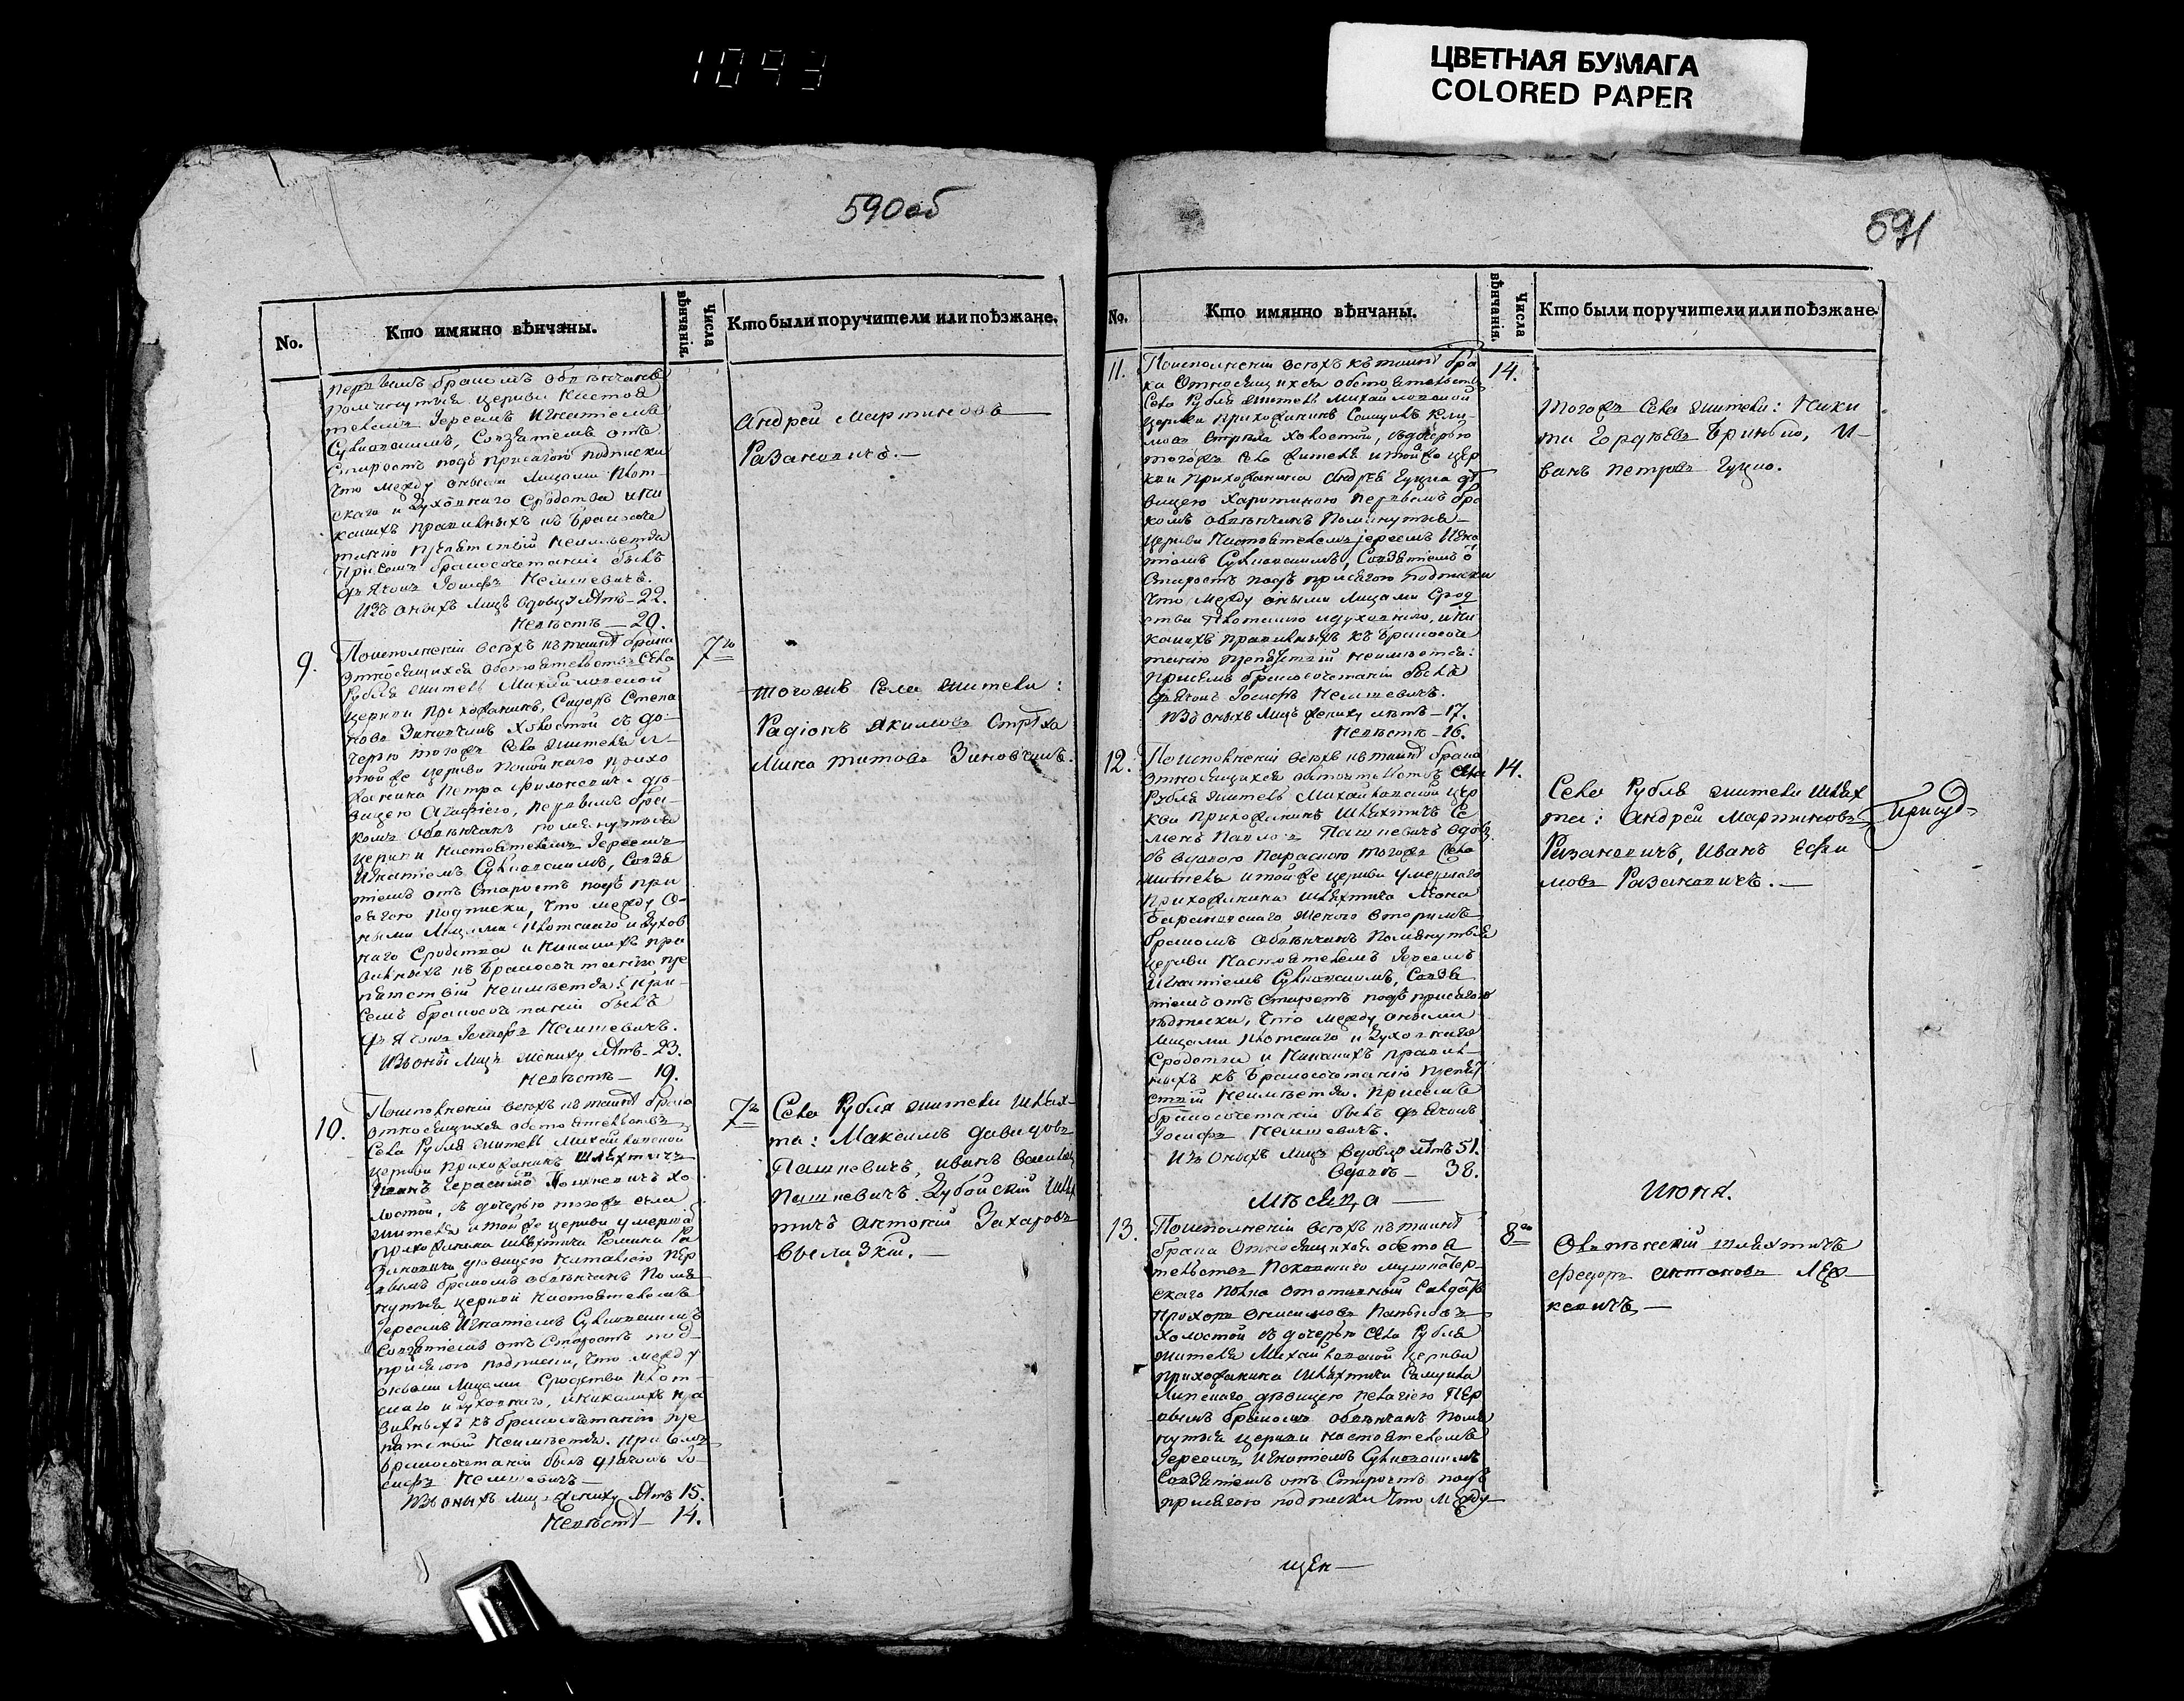 1093
ЦВЕТНАЯ БУМАГА
COLORED PAPER
590об
No.
Кто имянно вѣнчаны.
Числа вѣнчанія.
Кто были поручители или поѣзжане.
первымъ бракомъ обвѣнчанъ
помянутыя церкви настоя
телемъ Іереемъ Игнатіемъ
Сулковскимъ, Созятіемъ отъ
Старостъ подъ присягою подписки
что между оными Лицами плот-
скаго и Духовнаго Сродства и ни
какихъ правильныхъ къ Бракосоче
танію препятствій неимѣется
При семъ бракосочетаніи былъ
Дьячокъ Іосифъ
Изъ оныхъ Лицъ Вдовцу Лѣтъ - 22.
Невѣстѣ - 20.
Андрей Мартиновъ
Разановичъ. —
9.
По исполненіи всѣхъ къ таинст брака
относящихся обстоятельствъ Села
Рубля житель Михайловской
церкви прихожанинъ, Сидоръ Степа
новъ Холостой съ до-
черью тогожъ Села жителя и
тойже церкви прихо
жанина Петра дѣ-
вицею Агафіею, первымъ бра-
комъ обвѣнчанъ помянутыя
церкви настоятелемъ Іереемъ
Игнатіемъ Сулковскимъ, Созя
тіемъ отъ Старостъ подъ при
сягою подписки, что между О-
ными Лицами плотскаго и духов
наго Сродства и никакихъ пра
вильныхъ къ Бракосочетанію пре
пятствій неимѣется. При
семъ бракосочетаніи былъ
Дьячокъ Іосифъ
Изъ оны Лицъ жениху Лѣтъ - 23.
Невѣстѣ — 19.
7го
тогожъ Села жители:
Радіонъ Якимовъ Стрѣха
Титовъ
10.
По исполненіи всѣхъ къ таинст брака
относящихся обстоятельствъ
Села Рубля житель Михайловской
церкви прихожанинъ шляхтичъ
Иванъ Пашкевичъ хо
лостой, съ дочерью тогожъ села
жителя и тойже церкви умершаго
прихожанина шляхтича Ра
зановича дѣвицею Наталіею пер
вымъ бракомъ обвѣнчанъ помя
нутыя церкви настоятелемъ
Іереемъ Игнатіемъ Сулковскимъ
Созятіемъ отъ Старостъ под
присягою подписки, что между
оными Лицами Сродства плот
скаго и духовнаго, и никакихъ пра
вильныхъ къ бракосочетанію пре
пятствій неимѣется. При семъ
бракосочетаніи былъ дьячокъ Іо
сифъ
Изъ оныхъ Лиц жениху Лѣтъ 15.
Невѣстѣ — 14.
7го
Села Рубля жители Шлях-
та: Максимъ Давидовъ
Пашкевичъ, Иванъ
Пашкевичъ. Дубойскій Шлях
тичъ Антоній Захаровъ
591
No.
Кто имянно вѣнчаны.
Числа вѣнчанія.
Кто были поручители или поѣзжане
11.
По исполненіи всѣхъ къ таинст бра
ка относящихся обстоятельствъ
Села Рубля житель Михайловской
церкви прихожанинъ Кли-
мовъ Стрѣха холостой, съ дочерью
тогожъ села жителя и тойже цер
кви прихожанина Андрея Гуцка дѣ
вицею Харитиною первымъ бра
комъ обвѣнчанъ помянутыя
церкви настоятелемъ іереемъ Игна
тіемъ Сулковскимъ, Созятіемъ о
Старостъ подъ присягою подписки
что между оными Лицами Срод
ства плотскаго и духовнаго, и ни
какихъ правильныхъ къ Бракосоче
танію препятствій неимѣется:
При семъ бракосочетаніи былъ
Дьячокъ Іосифъ
Изъ оныхъ Лицъ жениху лѣтъ - 17.
Невѣстѣ - 16.
14.
тогожъ Села жители: Ники
та Гордѣевъ И-
ванъ Петровъ Гуцко.
12.
По исполненіи всѣхъ къ таинст брака
относящихся обстоятельствъ Села
Рубля житель Михайловской цер
кви прихожанинъ Шляхтичъ Се
менъ Павловъ Пашкевичъ вдовъ
съ вдовою Параскою тогожъ Села
жителя и тойже церкви умершаго
прихожанина шляхтича
Барановскаго женою вторымъ
бракомъ обвѣнчанъ помянутыя
церкви Настоятелемъ Іереемъ
Игнатіемъ Сулковскимъ, Созя
тіемъ отъ Старостъ подъ присягою
подписки, что между оными
Лицами плотскаго и Духовнаго
Сродства и Никакихъ правиль-
ныхъ къ Бракосочетанію препят
ствій неимѣется. При семъ
бракосочетаніи былъ дьячокъ
Іосифъ
Изъ оныхъ Лицъ Вдовцу лѣтъ 51.
Вдовѣ — 38.
14.
Села Рубля жители шлях
та: Андрей Мартиновъ
Разановичъ, Иванъ Ефи
мовъ Разановичъ. —
Мѣсяца
Июня.
13.
По исполненіи всѣхъ къ таинст
брака относящихся обстоя
тельствъ мушкатер-
скаго полка отставный Солдатъ
Прохоръ
холостой съ дочерью Села Рубля
жителя Михайловской церкви
прихожанина Шляхтича Самуила
Липскаго дѣвицею Пелагіею пер
вымъ бракомъ обвѣнчанъ помя
нутыя церкви настоятелемъ
Іереемъ Игнатіемъ Сулковскимъ
Созятіемъ отъ Старостъ подъ
присягою подписки что между
8го
шляхтичъ
Федоръ Антоновъ
щен—